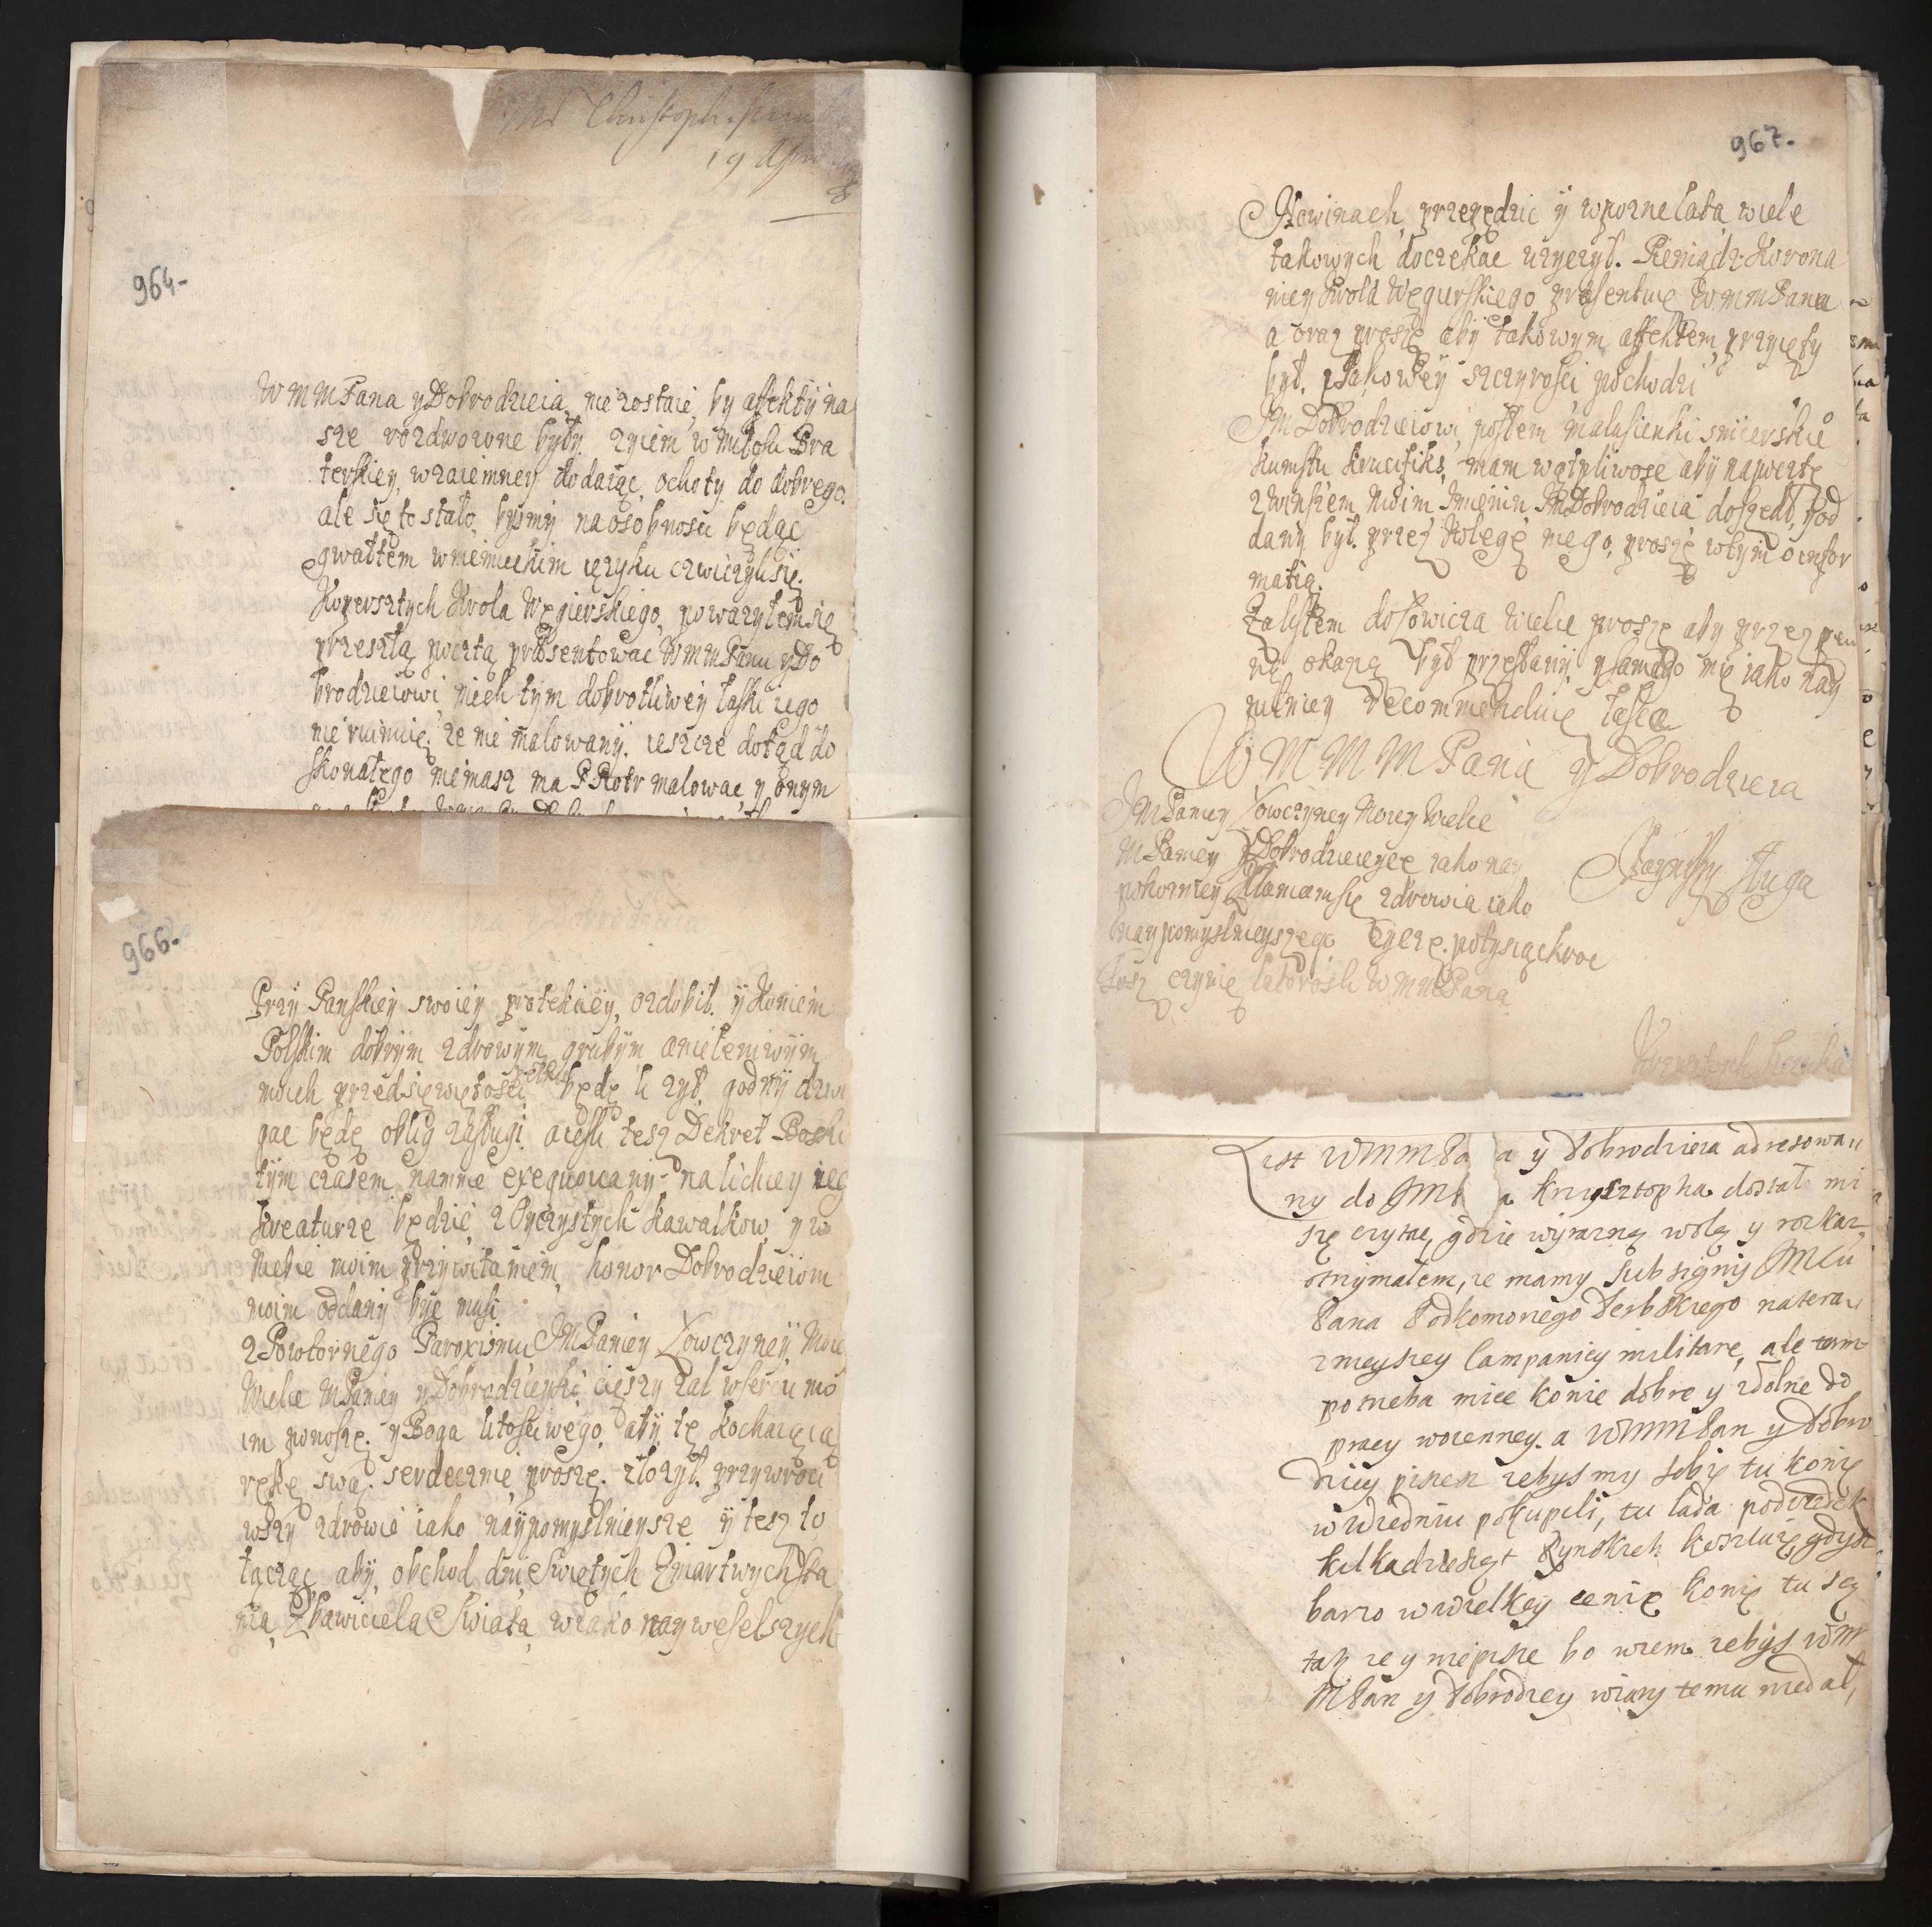 Christoph
19
964-
WMMPana y Dobrodzieia, nie zostaie, by affekty na
sze rozdwoione były. życiem w miłości Bra
terskiey, wzaiemney dodaiąc, ochoty do dobrego.
ale się to stało, bysmy na osobnosci będąc
gwałtem w niemieckim ięzyku czwiczyli się.
Kopersztych Krola Węgierskiego, poważyłem się
przeszłą pocztą præsentowac WMMPanu y Do
brodzieiowi, niech tym dobrotliwey łaski iego
nie ruinuię, że nie malowany. ieszcze dotąd do
skonałego niemasz ma P Piotr malowac, y onym
966-
Przy Panskiey swoiey protekciey, ozdobił. y Koniem
Polskim dobrym zdrowym grubym a nie leniwym
moich przedsięwziętosci będę li żył, godny
gac będę oblig zasługi, a iesli tesz Dekret Boski
tym czasem namnie exequowany na lichey
kreaturze będzie, z Oyczystych kawałkow, y w
Niebie moim przywitaniem, honor Dobrodzieiom
moim oddany byc musi.
z Powtornego Paroxismu JMPaniey Łowczyney, Mnie
Wielce MPaniey y Dobrodzieyki, cięszy żal w sercu mo
im ponoszę. y Boga litosciwego, aby tę kochaiącą
rękę swą. serdecznie proszę. złożył. przywroci
wszy zdrowie iako naypomyslnieysze y tesz to
łącząc aby, obchod dni Swiętych Zmartwychsta
nia, Zbawiciela Swiata, w iako nayweselszych
967-
Nowinach, przepędzic y w pozne lata, wiele
takowych doczekac uzyczył. Pieniądz Korona
niey Krola Węgierskiego præsentuię WMMPana
a oraz proszę aby takowym affektem, przyięty
był. z jakowey szczyrosci pochodzi
JM Dobrodzieiowi, posłem malusienki snicerskie
kunsztu krucifiks, mam wątpliwosc aby napoczte
z winszem moim Imienin JMDobrodzieia doszedł, pod
dany był. przez Kolegę mego, proszę w tym o infor
matią.
Zalistem dosowicza wielce proszę aby przez pew
ną okazą był przesłany. y samego mię iako nay
pilniey recommenduię łasce
WMMMPana y Dobrodzieia
JMPaniey Łowczyney Moiey Wielce
MPaniey y Dobrodzieyce iako nay
pokorniey kłaniam się zdrowia iako
naypomyslnieyszego życzę. po tysiąckroc
Tosz czynię latorosli WMMPana
sługa
List WMMPa a y Dobrodzieia adresowa
ny do JMP a Krzysztopha dostał mi
się czytac, gdzie wyrazną wolą y rozkaz
otrzymałem, ze mamy sub signis JMCi
Pana Podkomorzego Derbskiego na teraz
znieyszey Campaniey militare, ale tam
potrzeba miec konie dobre y zdolne do
pracy woienney. a WMMPan y Dobro
dziey pisze zebysmy sobie tu konie
w Wiedniu pokupili, tu lada podiezdek
kilkadziesiąt Rynskich kosztuie, gdysz
barzo w wielkiey cenie konie tu są
tak ze y niepisze bo wiem zebys WM
MPan y Dobrodziey wiary temu niedał,